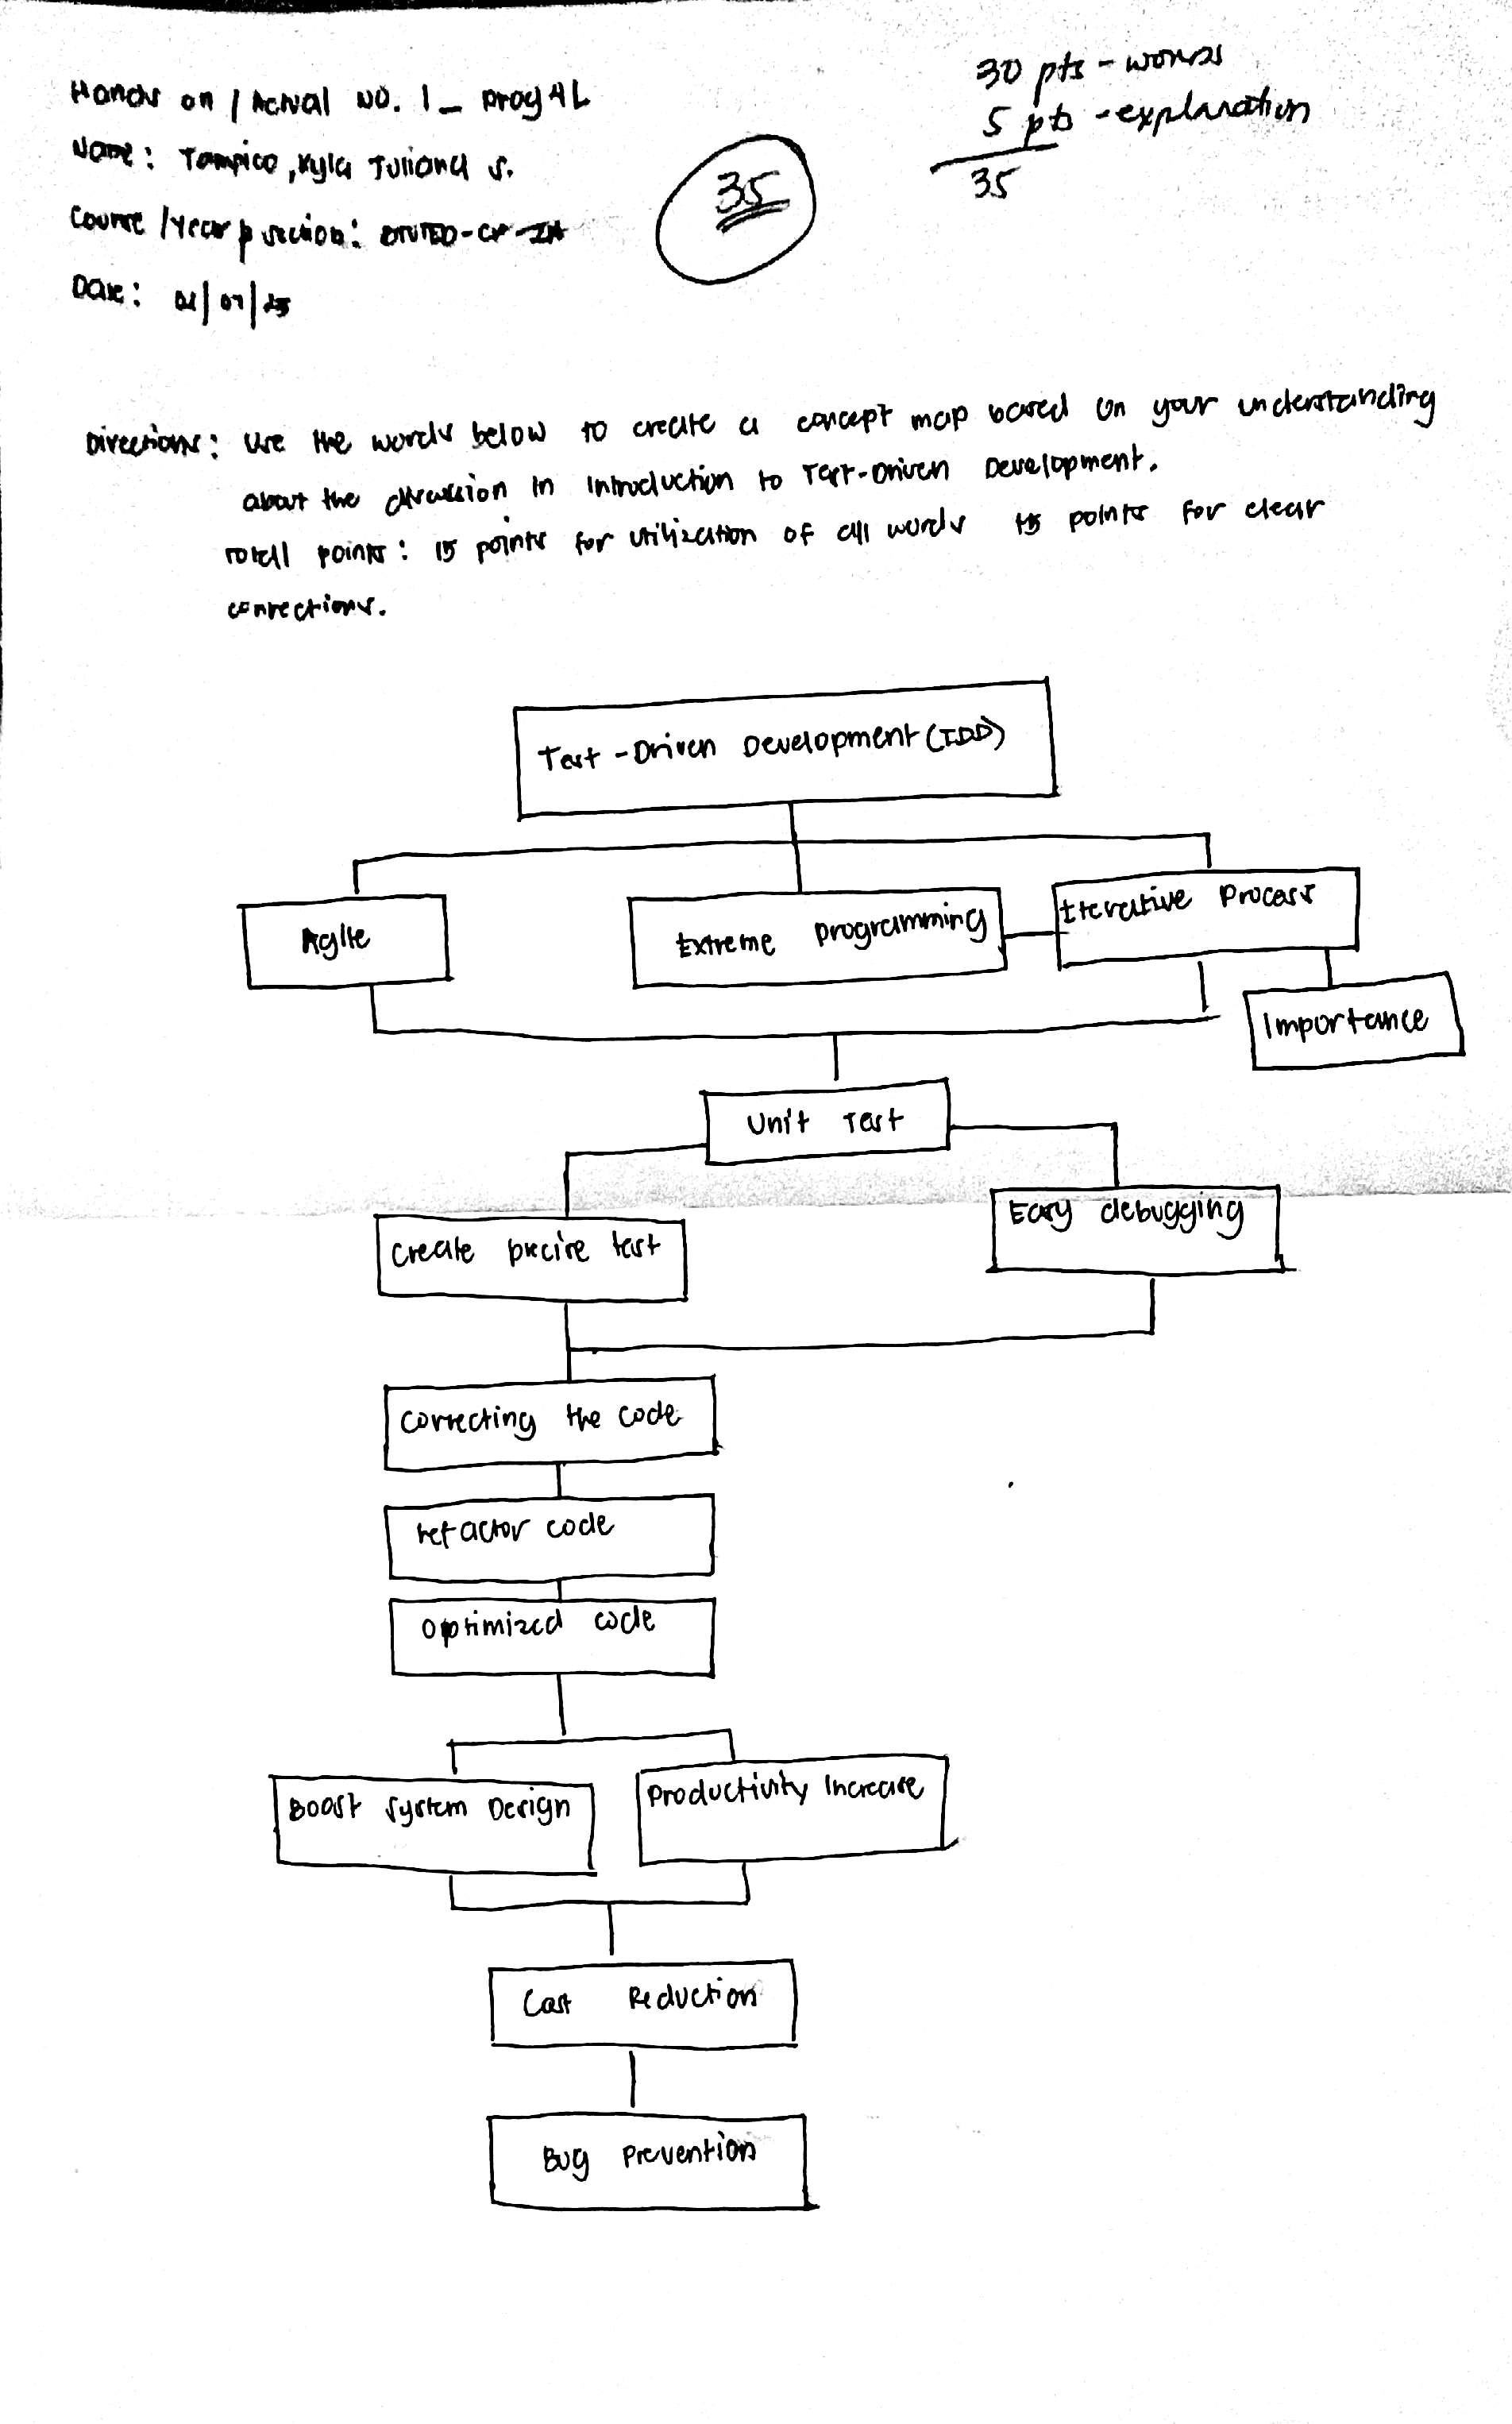 Hands on / Actual No. 1 _ Prog 4L
30 pts - words
5 pts - explanation
35
Name: Tampico, Kyla Juliana S.
35
Course / Year & Section:
Date:
Directions: Use the words below to create a concept map based on your understanding
about the discussion in Introduction to Test-Driven Development.
Total points: 15 points for utilization of all words 15 points for clear
connections.
Test-Driven Development (TDD)
Agile
Extreme Programming
Iterative Process
Importance
Unit Test
Create precise test
Easy debugging
Correcting the code
refactor code
Optimized code
Boost System Design
Productivity Increase
Cost Reduction
Bug Prevention